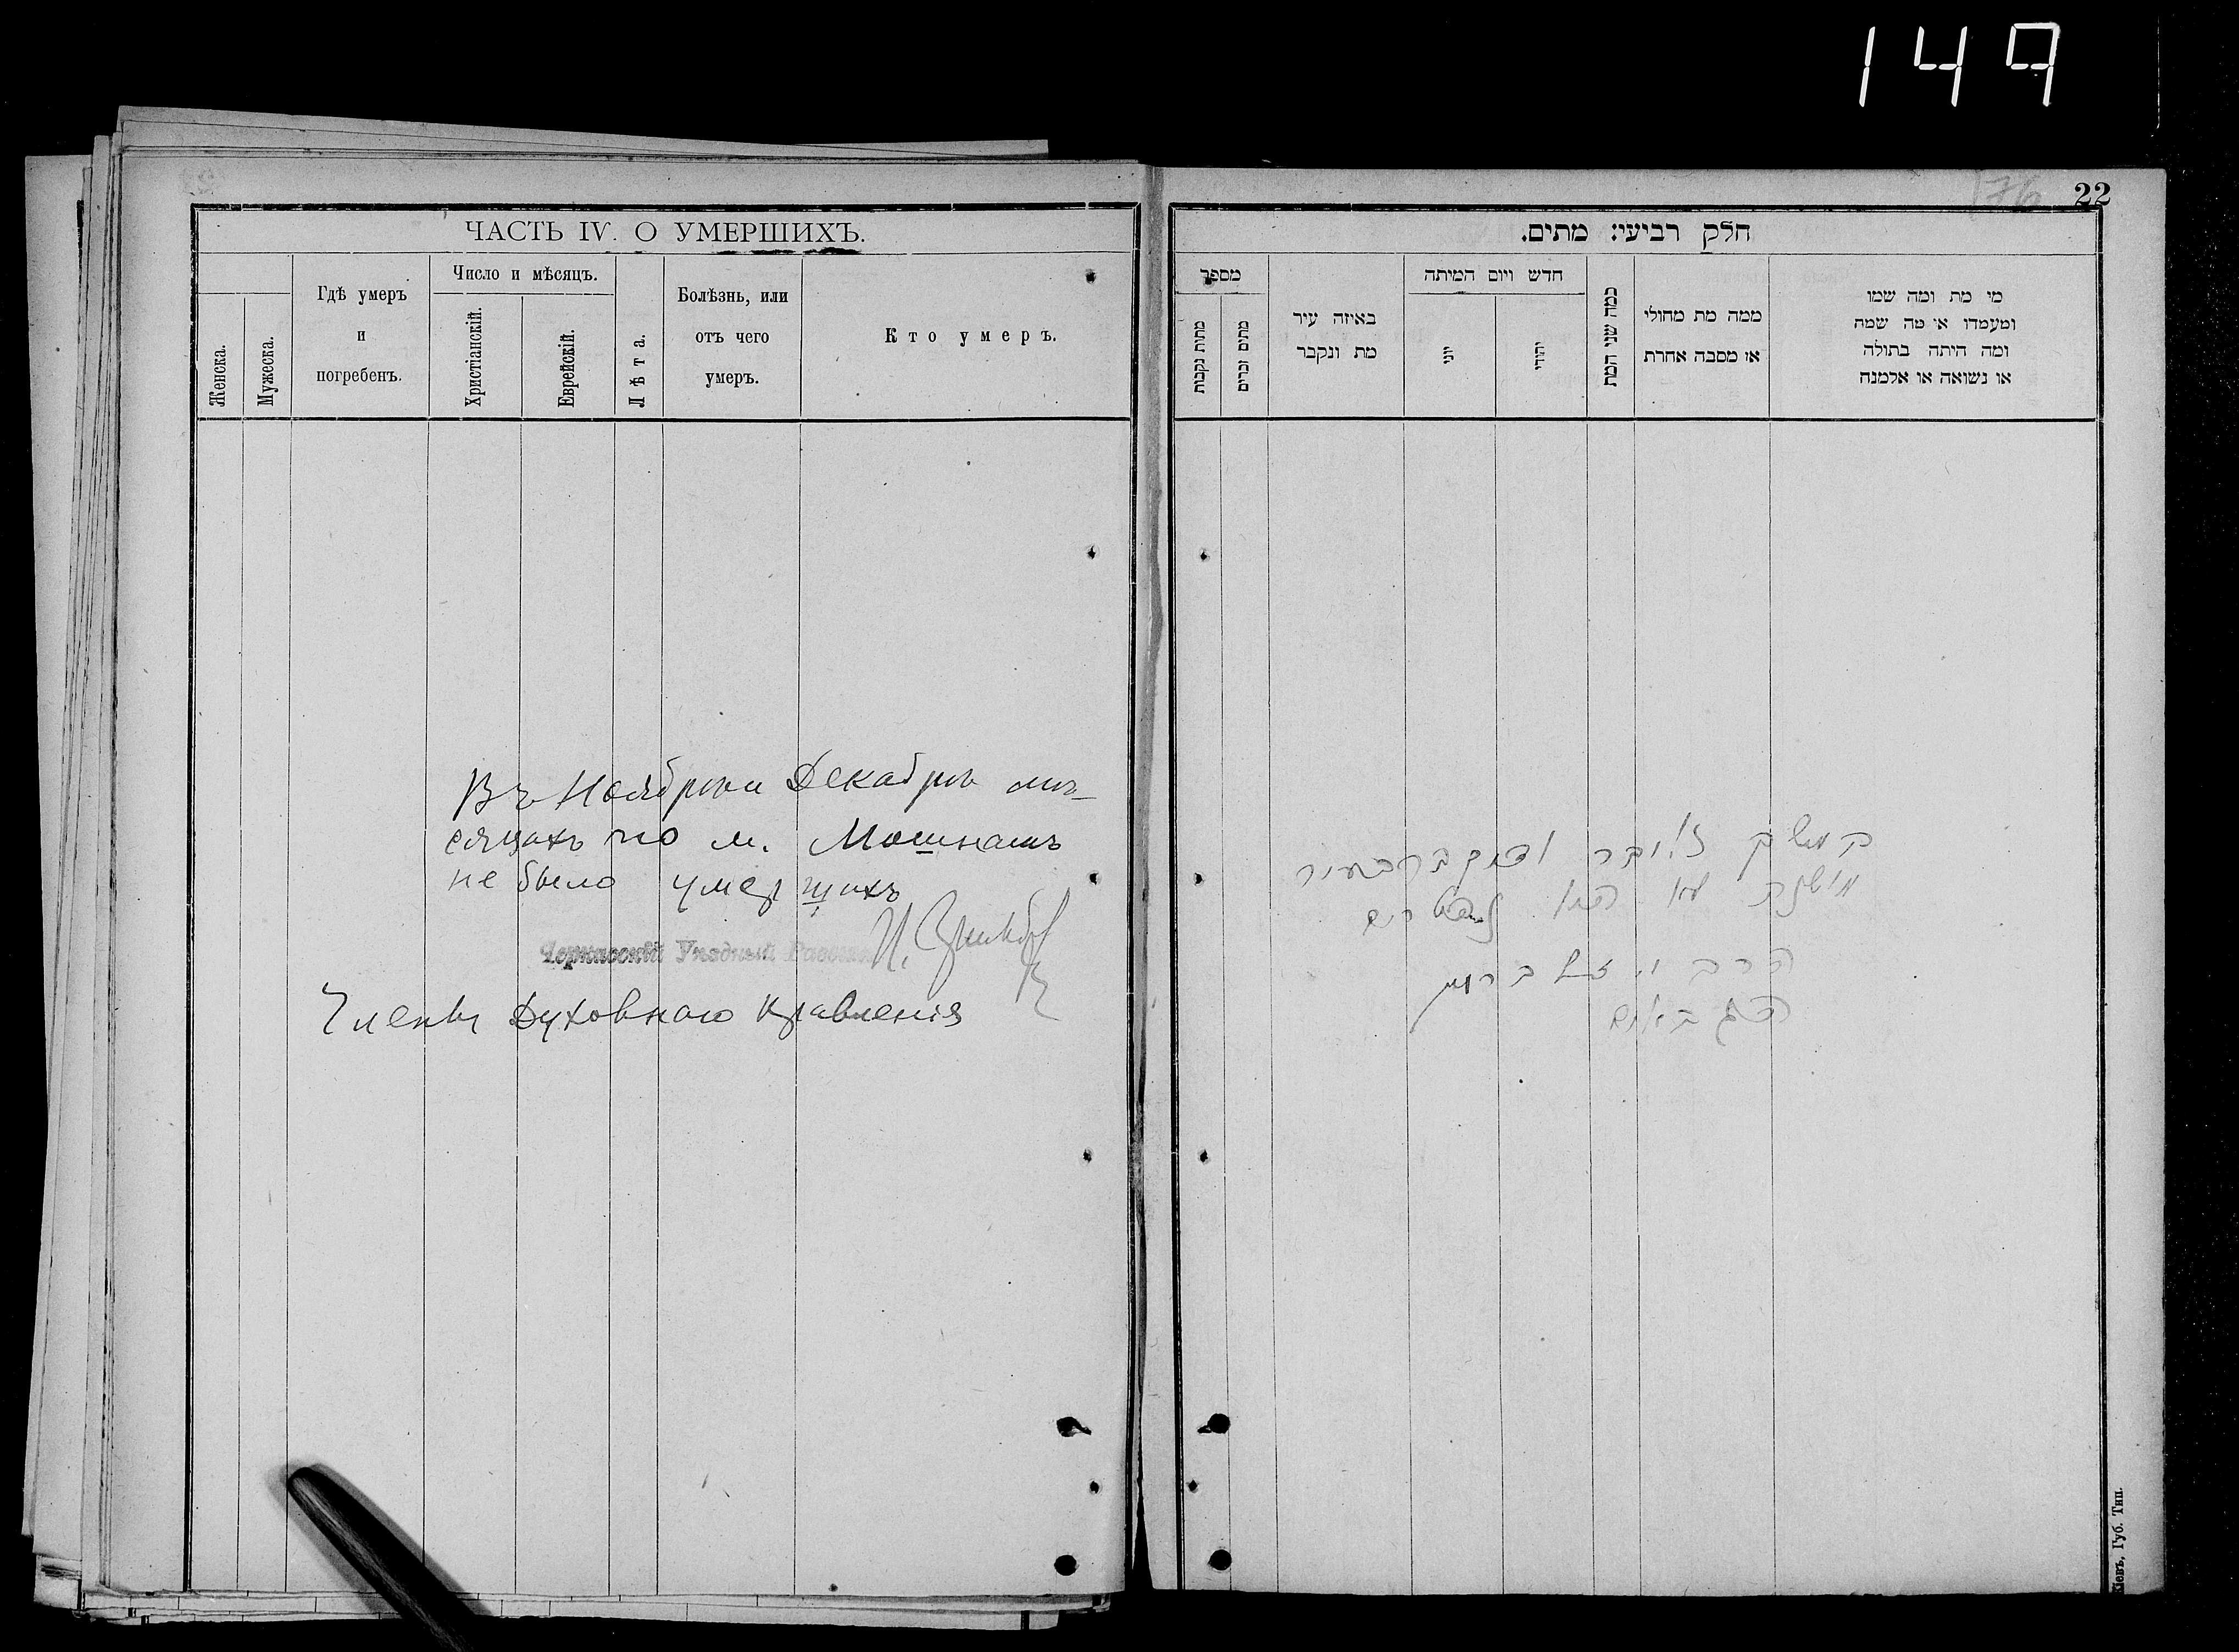 149
ЧАСТЬ IV. О УМЕРШИХЪ.
Женска.
Мужеска.
Гдѣ умеръ
и
погребенъ.
Число и мѣсяцъ.
Христіанскій.
Еврейскій.
Лѣта.
Болѣзнь, или
отъ чего
умеръ.
Кто умеръ.
Въ Ноябрѣ и Декабрѣ мѣ-
сяцахъ по м. Мошнамъ
не было умершихъ
Черкасскій Уѣздный
Члены Духовнаго Правленія
22
חלק רביעי: מתים.
מספר
מתות נקבות
מתים זכרים
באיזה עיר
מת ונקבר
חדש ויום המיתה
יוני
יהודי
כמה שני המת
ממה מת מחולי
או מסבה אחרת
מי מת ומה שמו
ומעמדו או מה שמה
ומה היתה בתולה
או נשואה או אלמנה
הרב
Кіевъ, Губ. Тип.